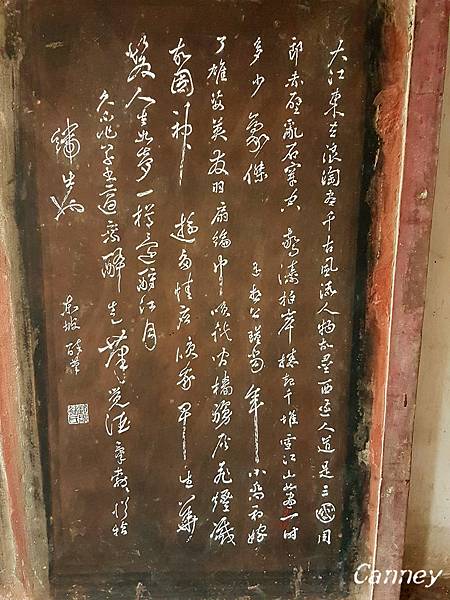 大江東去浪淘盡千古風流人物故壘西邊人道是三國周
郎赤壁亂石穿空驚濤拍岸捲起千堆雪江山如畫一時
多少豪傑遙想公瑾當年小喬初嫁
了雄姿英發羽扇綸巾談笑間檣艣灰飛煙滅
故國神遊多情應笑我早生華
髮人生如夢一樽還酹江月
久不作草書適乘醉走筆覺酒氣勃勃從指
端出也
東坡醉筆
Canney